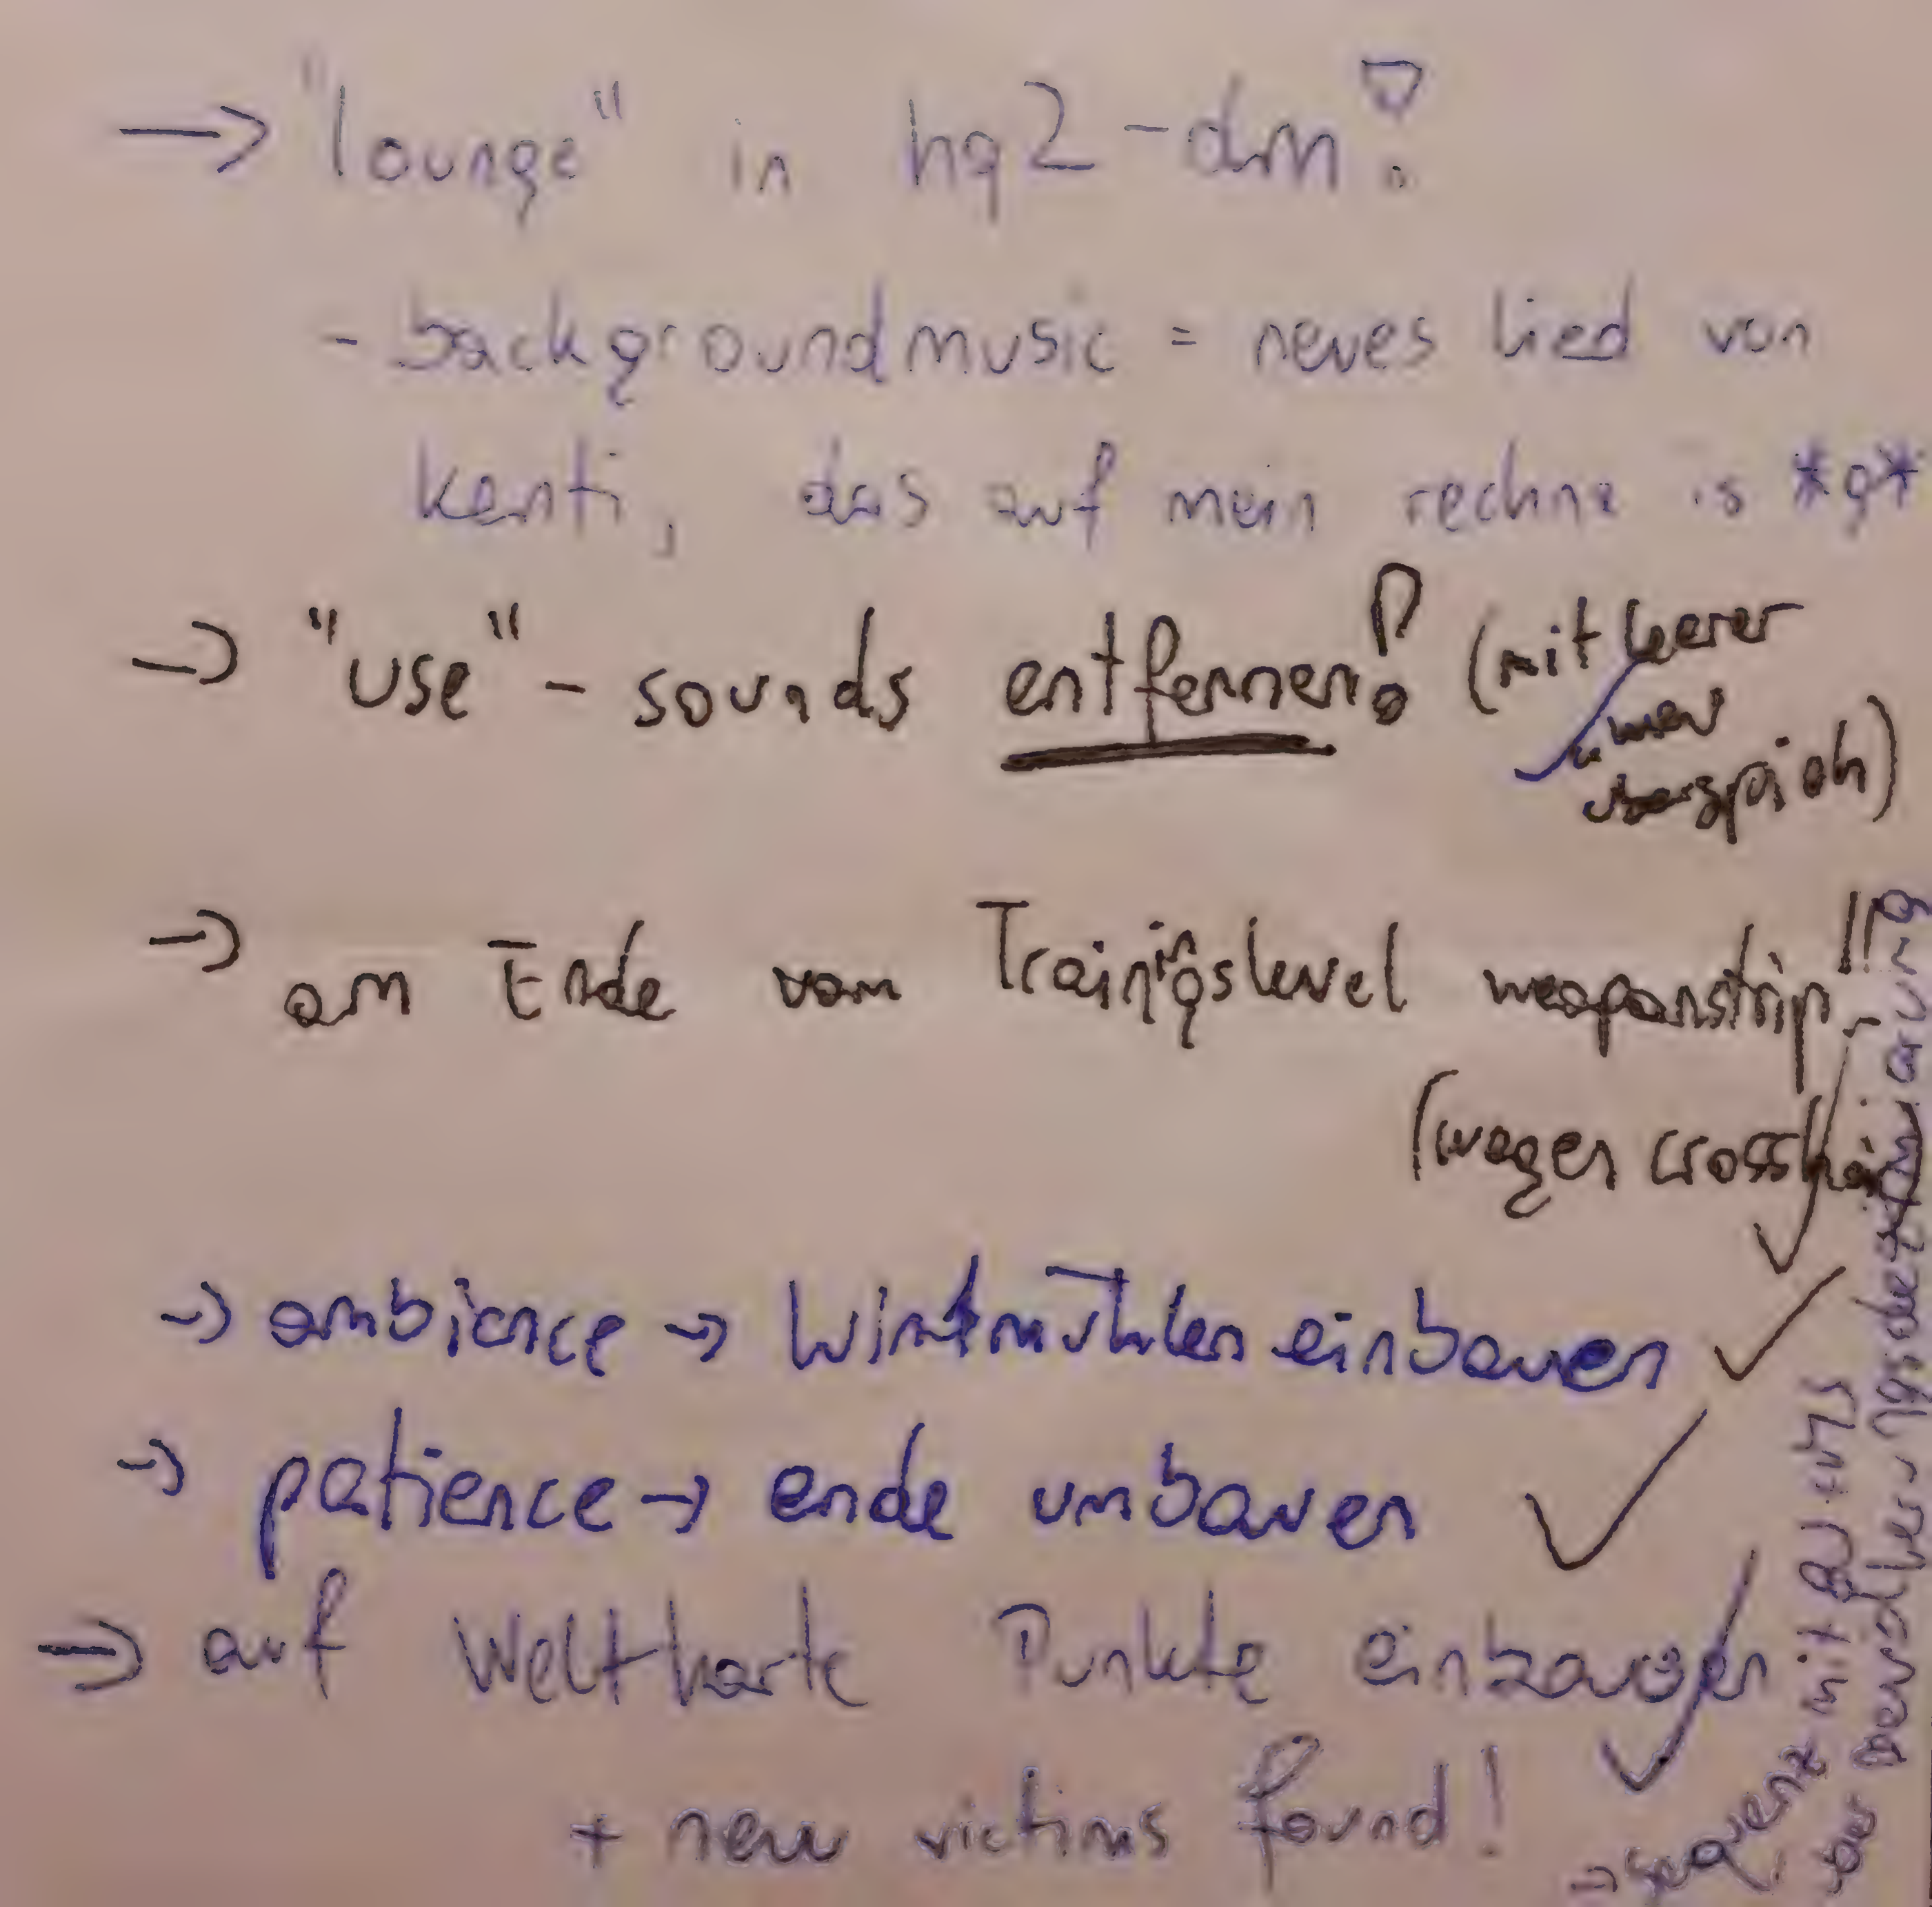 → "lounge" in hq2-dm!
- backgroundmusic = neues Lied von
kenti, das auf mein rechna is *g*
→ "use" - sounds entfernen! (mit leerer
wav
überspieln)
→ am Ende vom Trainingslevel weaponstrip!!
(wegen crosshair)
→ ambience → Windmühlen einbauen ✓
→ patience → ende umbauen ✓
→ auf Weltkarte Punkte einbauen
+ new victims found!
→ sequenz mit
der